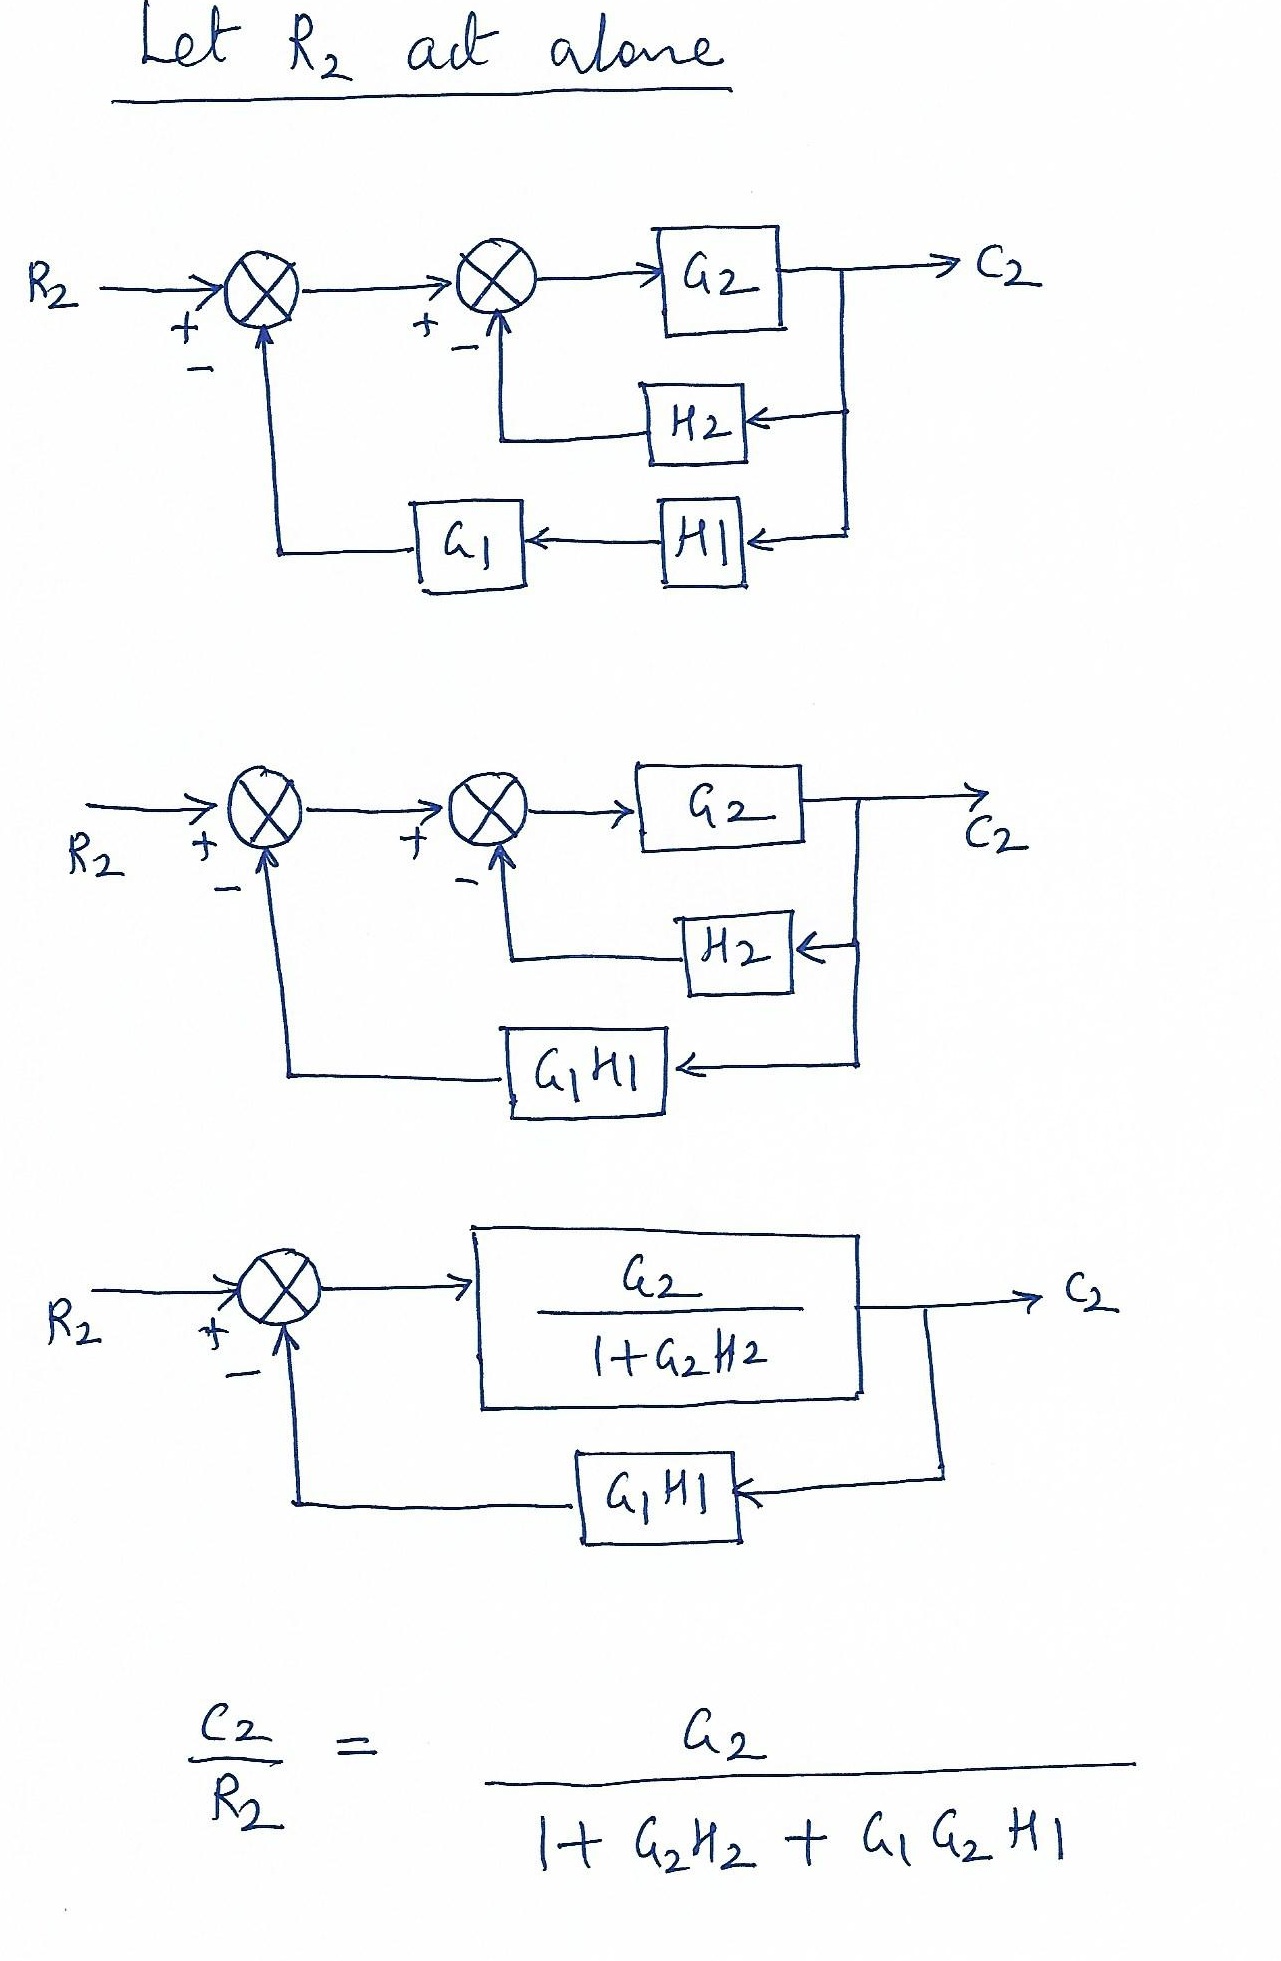 Let R2 act alone
R2 + - + - G2 C2
H2
G1 H1
R2 + - + - G2 C2
H2
G1 H1
R2 + - G2 C2
1+G2H2
G1 H1
C2 = G2
R2 1+ G2H2 + G1 G2 H1